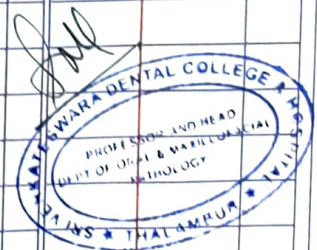 SRI VENKATESWARA DENTAL COLLEGE & HOSPITAL
★ THALAMBUR ★
PROFESSOR AND HEAD
DEPT OF ORAL & MAXILLOFACIAL
PATHOLOGY